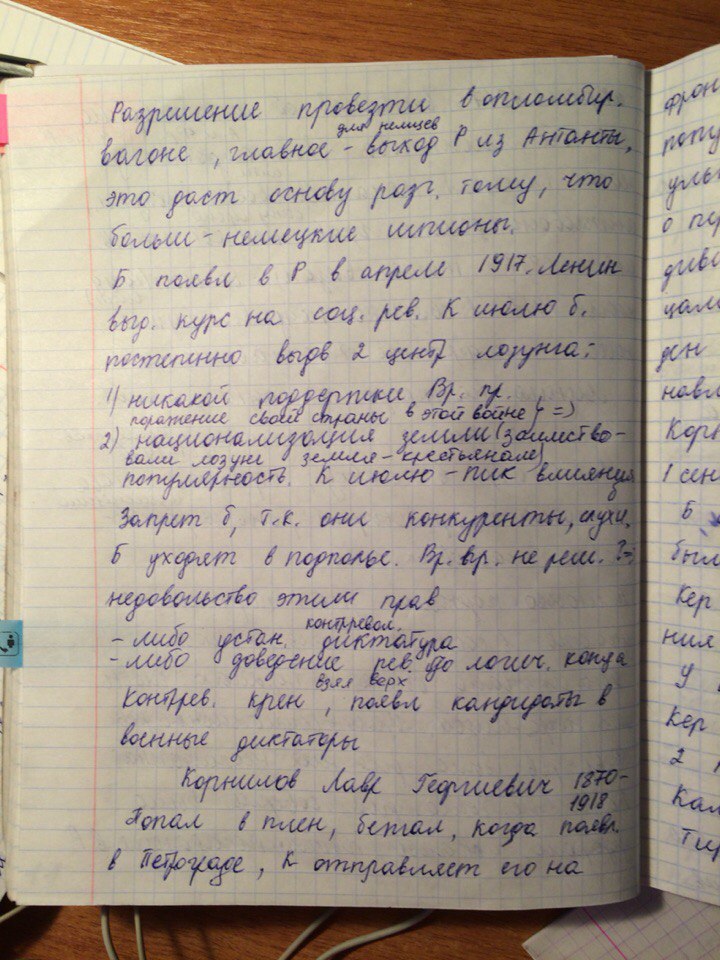 Разрешение провезти в опломбир.
для немцев
вагоне, главное - выход Р из Антанты,
это даст основу разг. тому, что
больш - немецкие шпионы.
Б появл в Р в апреле 1917. Ленин
выд. курс на соц. рев. К июлю б.
постепенно выдв 2 центр лозунга:
1) никакой поддержки Вр. пр.
поражение своей страны в этой войне
2) национализация земли (заимство-
вали лозунг земля - крестьянам)
популярность. К июлю - пик влияния
Запрет б, т.к. они конкуренты, слухи.
Б уходят в подполье. Вр. пр. не реш. ? =>
недовольство этими прав
контрревол.
- либо устан. диктатура
- либо доведение рев до логич. конца
взял верх
Контрев. крен, появл кандидаты в
военные диктаторы
Корнилов Лавр Георгиевич 1870-
1918
Попал в плен, бежал, когда появл.
в Петрограде, К отправляет его на
фрон
попу
уль
о пор
дива
цал
ден
навл
Корн
1 сен
Б
был
Кер
ния
У
Кер
2
Кал